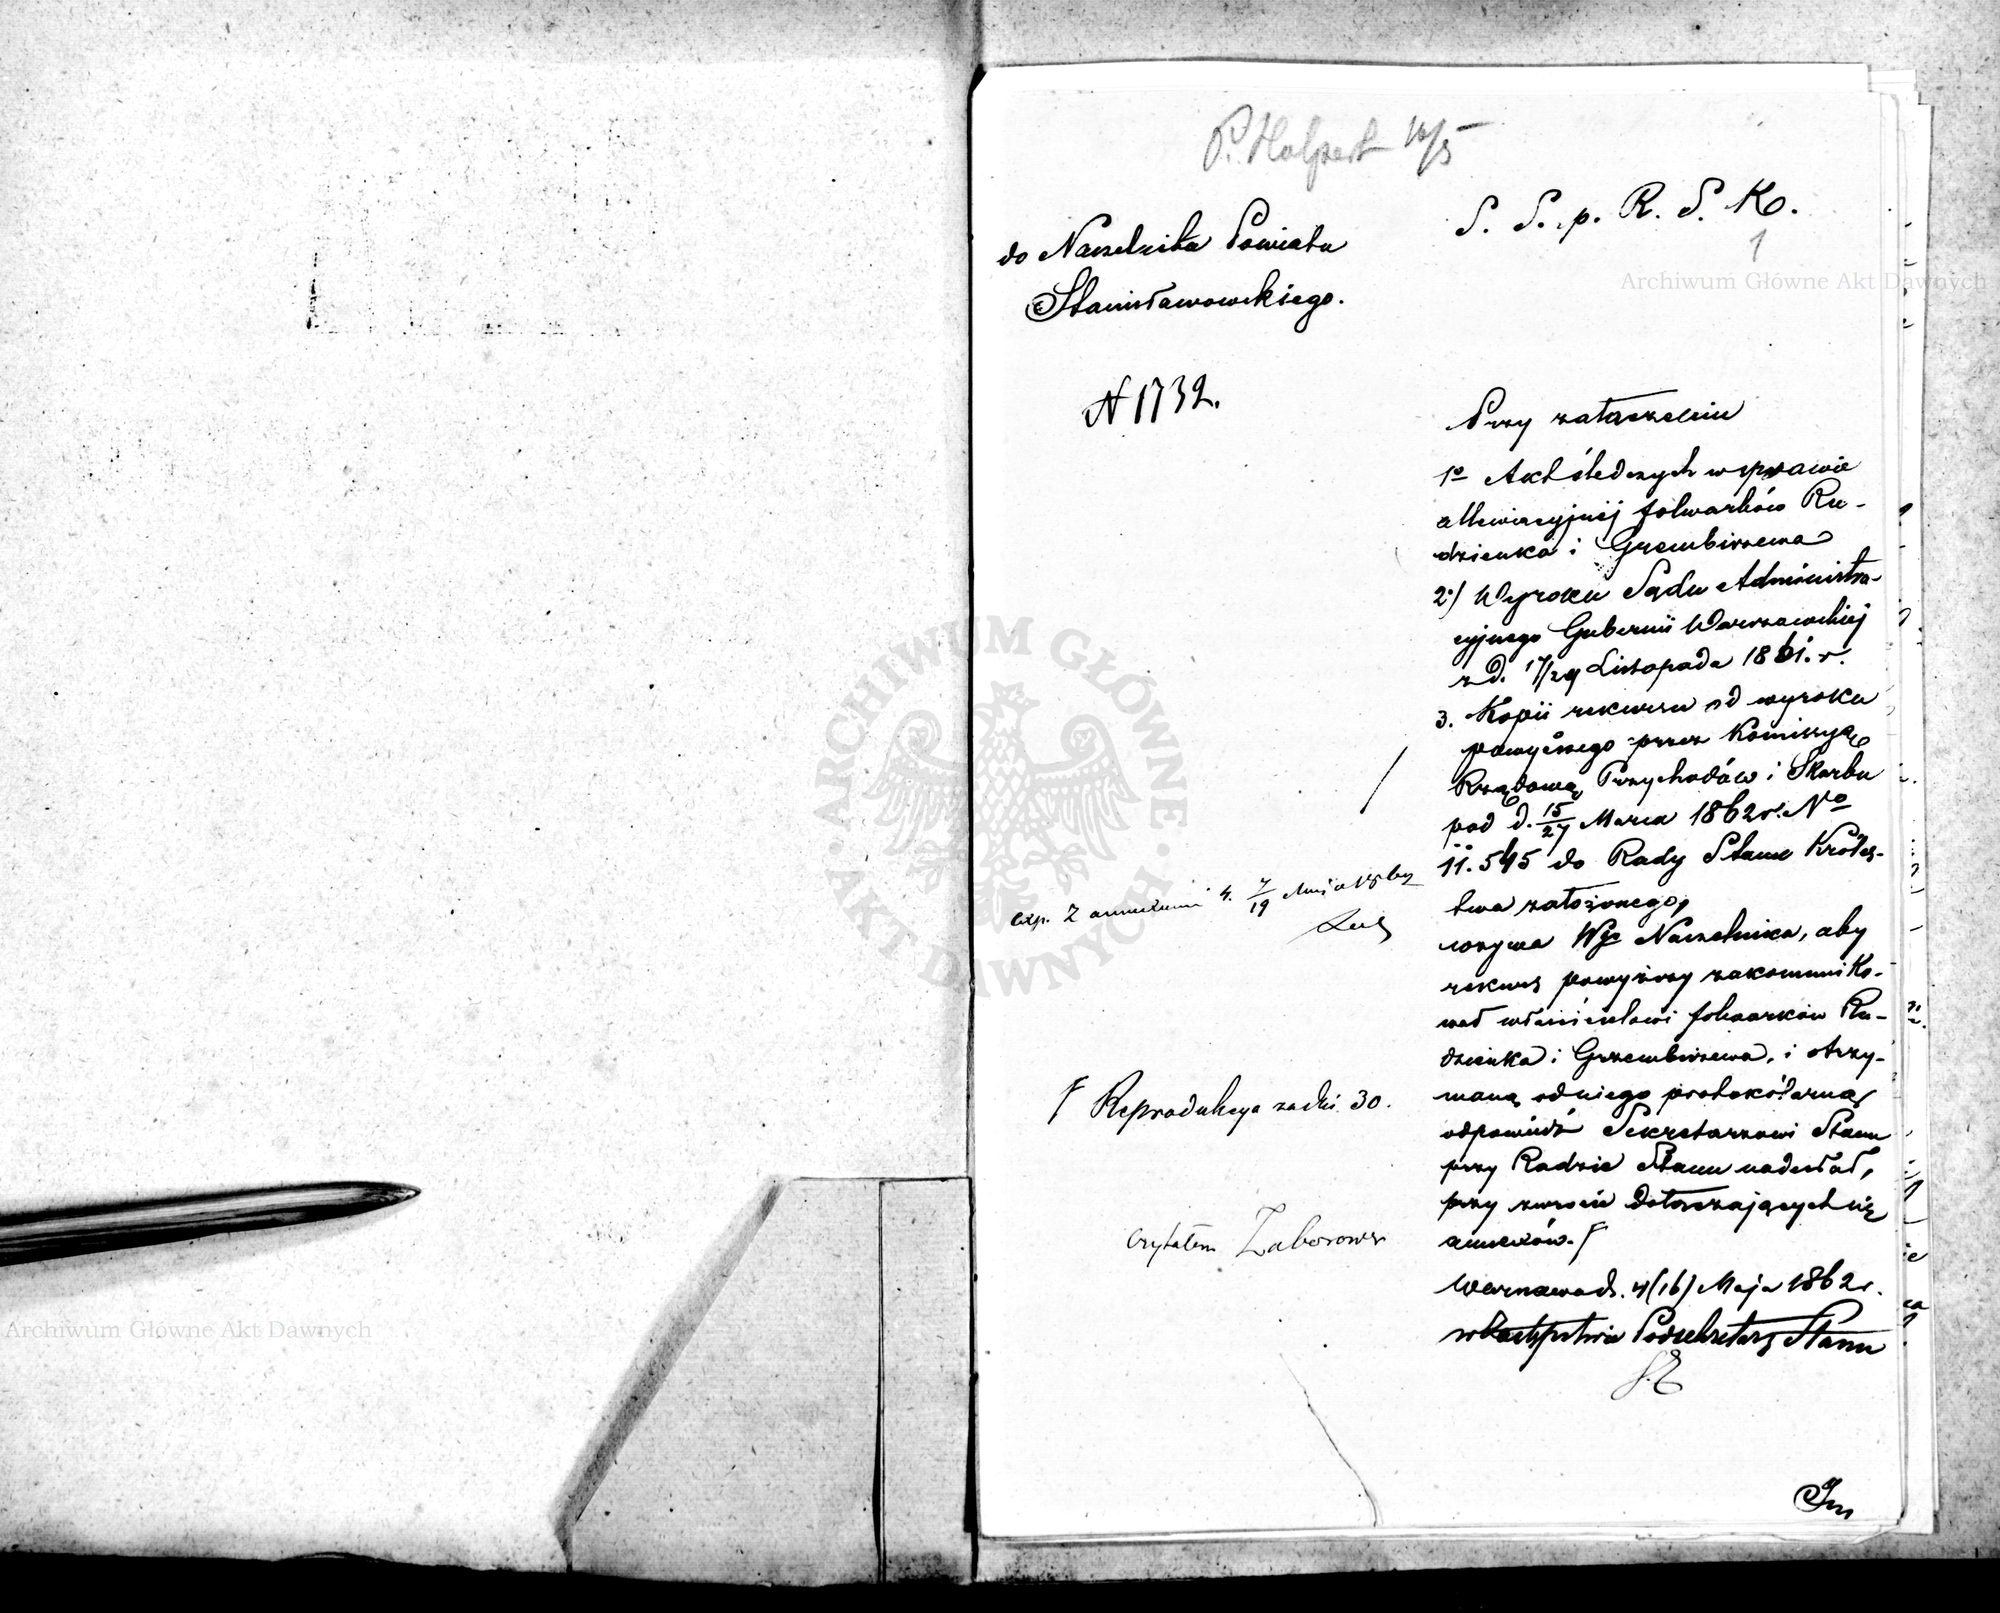 P. Halpert 16/5
S. S. p. R. S. K.
1
do Naczelnika Powiatu
Stanisławowskiego.
N 1732.
Przy załączeniu
1º Akt śledczych w sprawie
allewiacyjnéj folwarków Ru-
dzienka i Grembiszewa
2º/ Wyroku Sądu Administra-
cyjnego Gubernii Warszawskiéj
z d. 17/29 Listopada 1861. r.
3. Kopii rekursu od wyroku
powyższego przez Kommisyą
Rządową Przychodów i Skarbu
pod d. 15/27 Marca 1862 r. Nº
11.545 do Rady Stanu Króles-
twa założonego,
wzywa Wgo Naczelnika, aby
rekurs powyższy zakommuniko-
wał właścicielowi folwarków Ru-
dzienka i Grzembiszewa, i otrzy-
maną od niego protokólarną
odpowiedź Sekretarzowi Stanu
przy Radzie Stanu nadesłał,
przy zwrocie dołączających się
annexów. F
Warszawa d. 4 (16) Maja 1862 r.
w Zastępstwie Podsekretarz Stanu
exp. Z annexami 4. 7/19 Maja
F Reprodukcya za dni 30.
czytałem Zaborows
Archiwum Główne Akt Dawnych
ARCHIWUM GŁÓWNE AKT DAWNYCH
Archiwum Główne Akt Dawnych